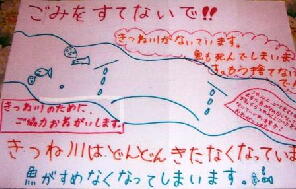 ごみをすてないで!!
きつね川がないています。
魚も死んでしまいま
きつね川のために、
ご協力おねがいします。
きつね川は、どんどんきたなくなっていま
魚がすめなくなってしまいます。